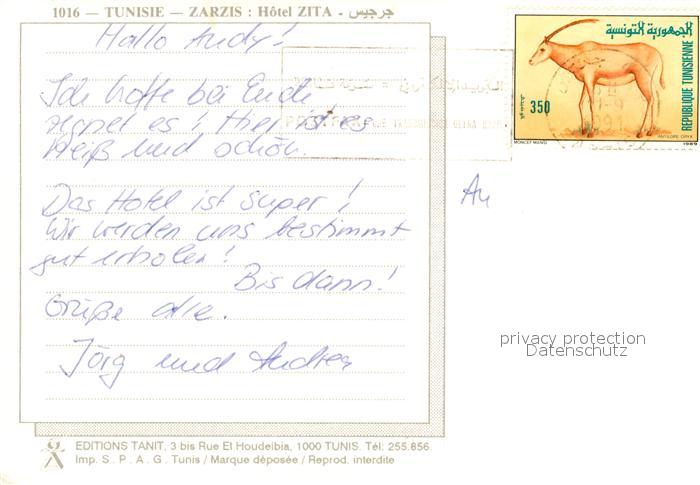 1016 — TUNISIE — ZARZIS : Hôtel ZITA - جرجيس
Hallo Andy!
Ich hoffe bei Euch
regnet es! Hier ist es
heiß und schön.
Das Hotel ist super!
Wir werden uns bestimmt
gut erholen!
Bis dann!
Grüße alle.
Jörg und Andrea
An
الجمهورية التونسية
REPUBLIQUE TUNISIENNE
350
MONCEF MANSI
ANTILOPE ORYX
1989
privacy protection
Datenschutz
EDITIONS TANIT, 3 bis Rue El Houdeibia, 1000 TUNIS. Tél: 255.856.
Imp. S. P. A. G. Tunis / Marque déposée / Reprod. interdite